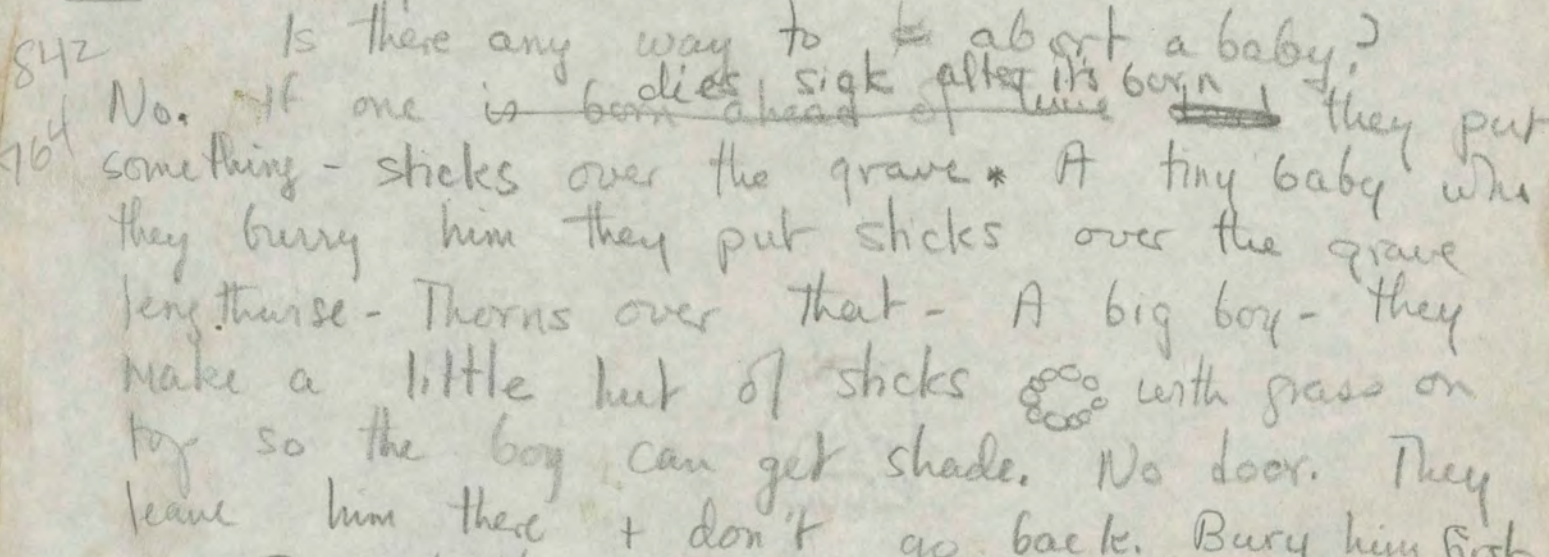 842 Is there any way to abort a baby?
dies, sick after it's born
No. If one is born ahead of time they put
764 something - sticks over the grave * A tiny baby who
they burry him they put sticks over the grave
lengthwise - Thorns over that - A big boy - they
make a little hut of sticks with grass on
top so the boy can get shade. No door. They
leave him there + don't go back. Bury him